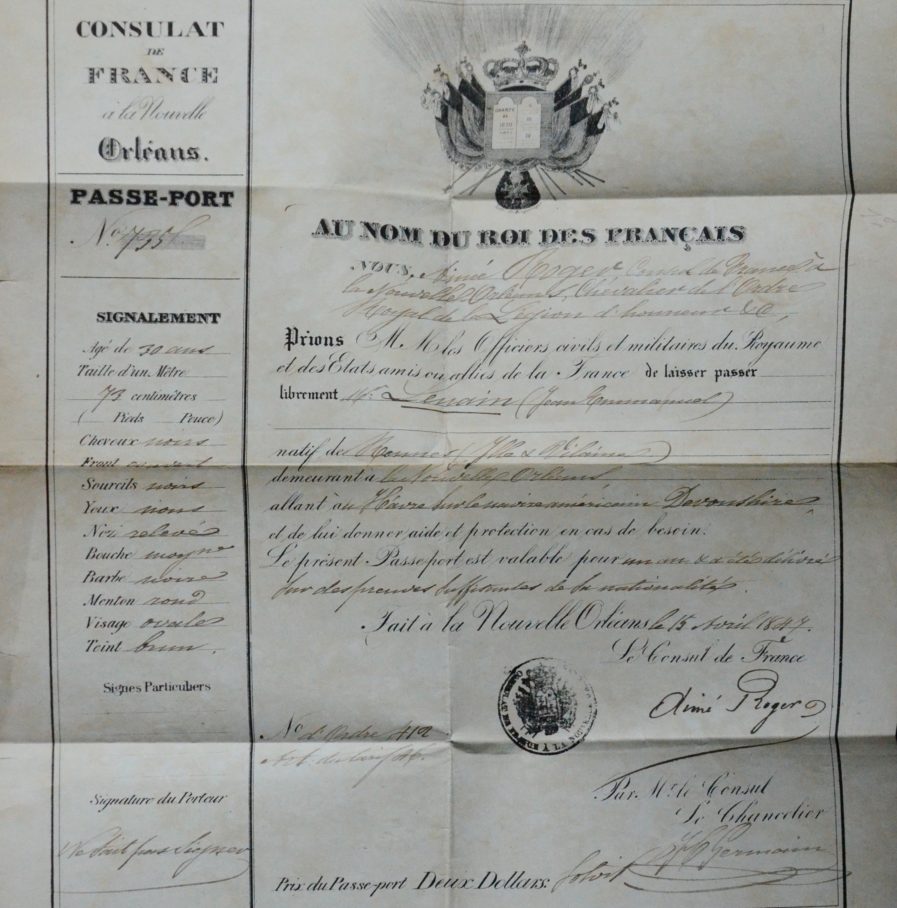 CONSULAT
DE
FRANCE
à la Nouvelle
Orléans.
PASSE-PORT
No.
SIGNALEMENT
Agé de 30 ans
Taille d'un Mètre
73 centimètres
( Pieds Pouce)
Cheveux noirs
Front ouvert
Sourcils noirs
Yeux noirs
Nez relevé
Bouche moyenne
Barbe noire
Menton rond
Visage ovale
Teint brun.
Signes Particuliers
Signature du Porteur
Ne Sait pas Signer
CHARTE
DE
1830
AU NOM DU ROI DES FRANÇAIS
NOUS, Aimé Roger Consul de France à
la Nouvelle Orléans, Chevalier de l'Ordre
Royal de la Légion d'honneur &c,
Prions M.M. les Officiers civils et militaires du Royaume
et des Etats amis ou alliés de la France de laisser passer
librement Mr. Lendin (Jean Emmanuel)
natif de Rennes (Ille & Vilaine)
demeurant à la Nouvelle Orléans
allant au Hâvre sur le navire américain Devonshire
et de lui donner aide et protection en cas de besoin.
Le présent Passe-port est valable pour un an & a été délivré
sur des preuves suffisantes de sa nationalité.
Fait à la Nouvelle Orléans le 15 Avril 1847.
Le Consul de France
Aimé Roger
No. d'Ordre 412
Par Mr. le Consul
Le Chancelier
Germain
Prix du Passe-port Deux Dollars.